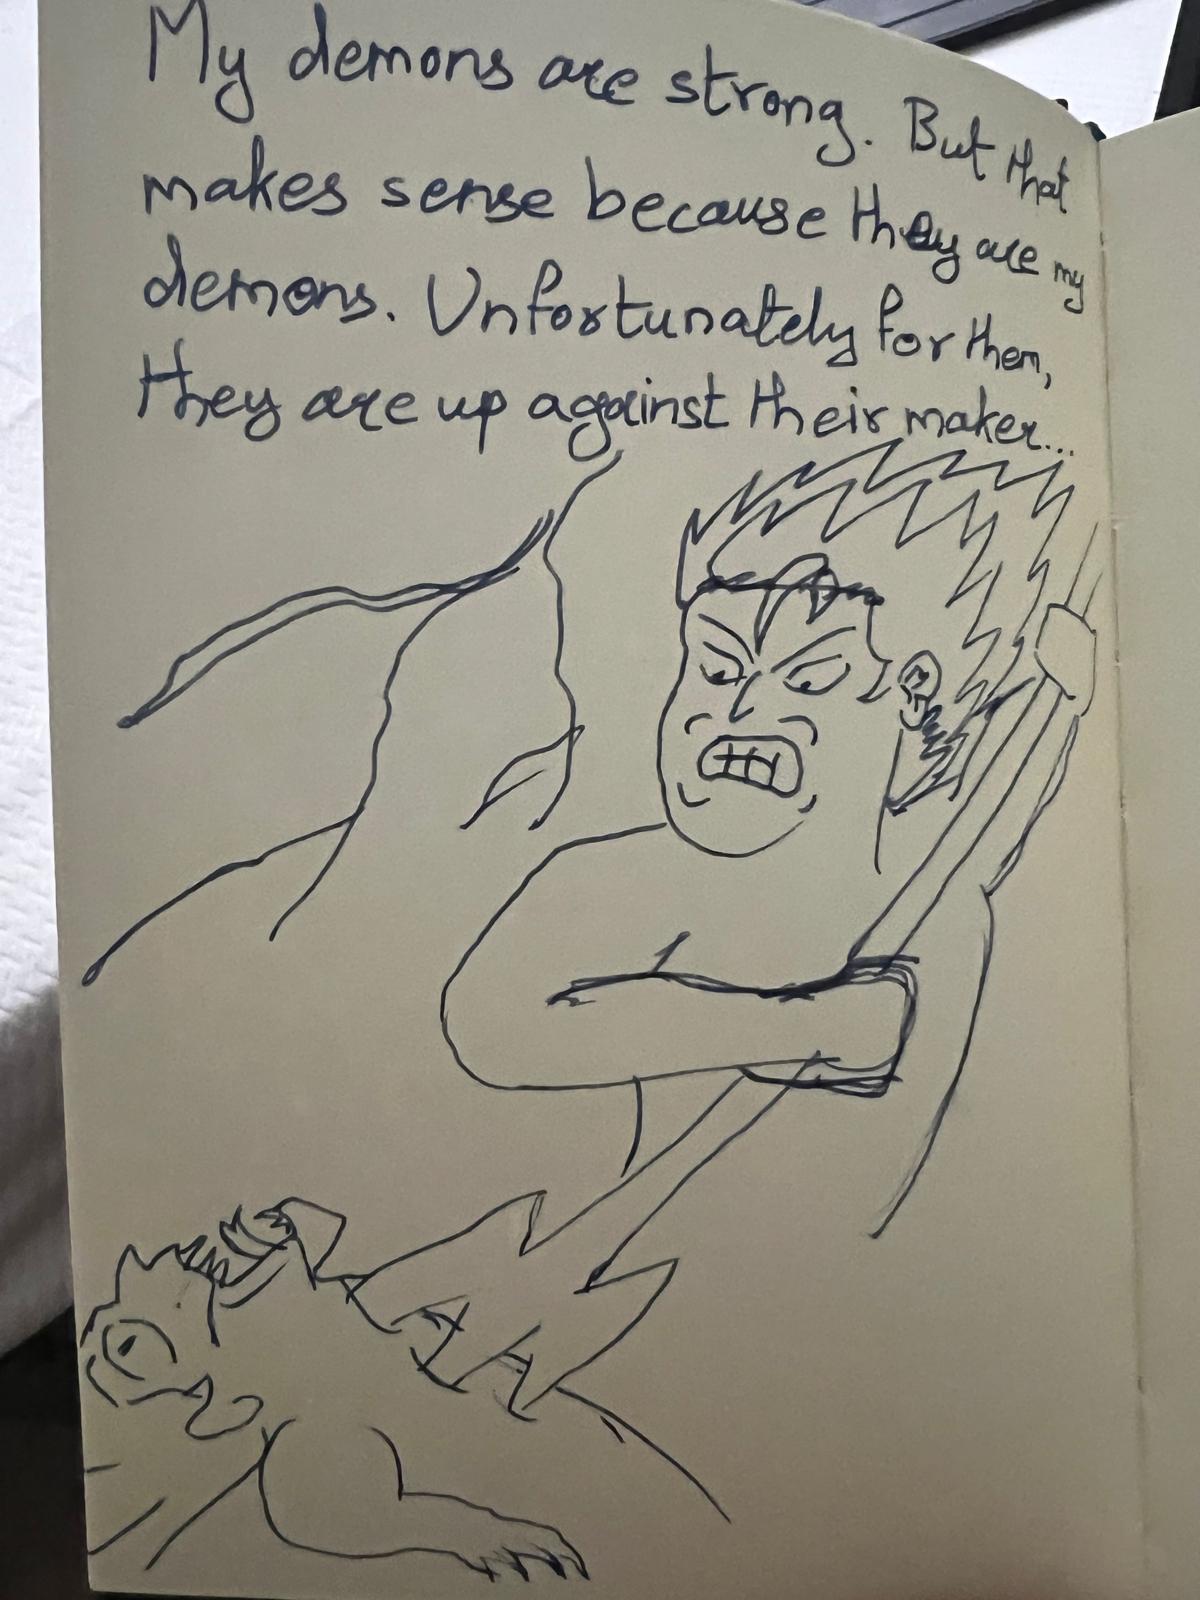 My demons are strong. But that
makes sense because they are my
demons. Unfortunately for them,
they are up against their maker...